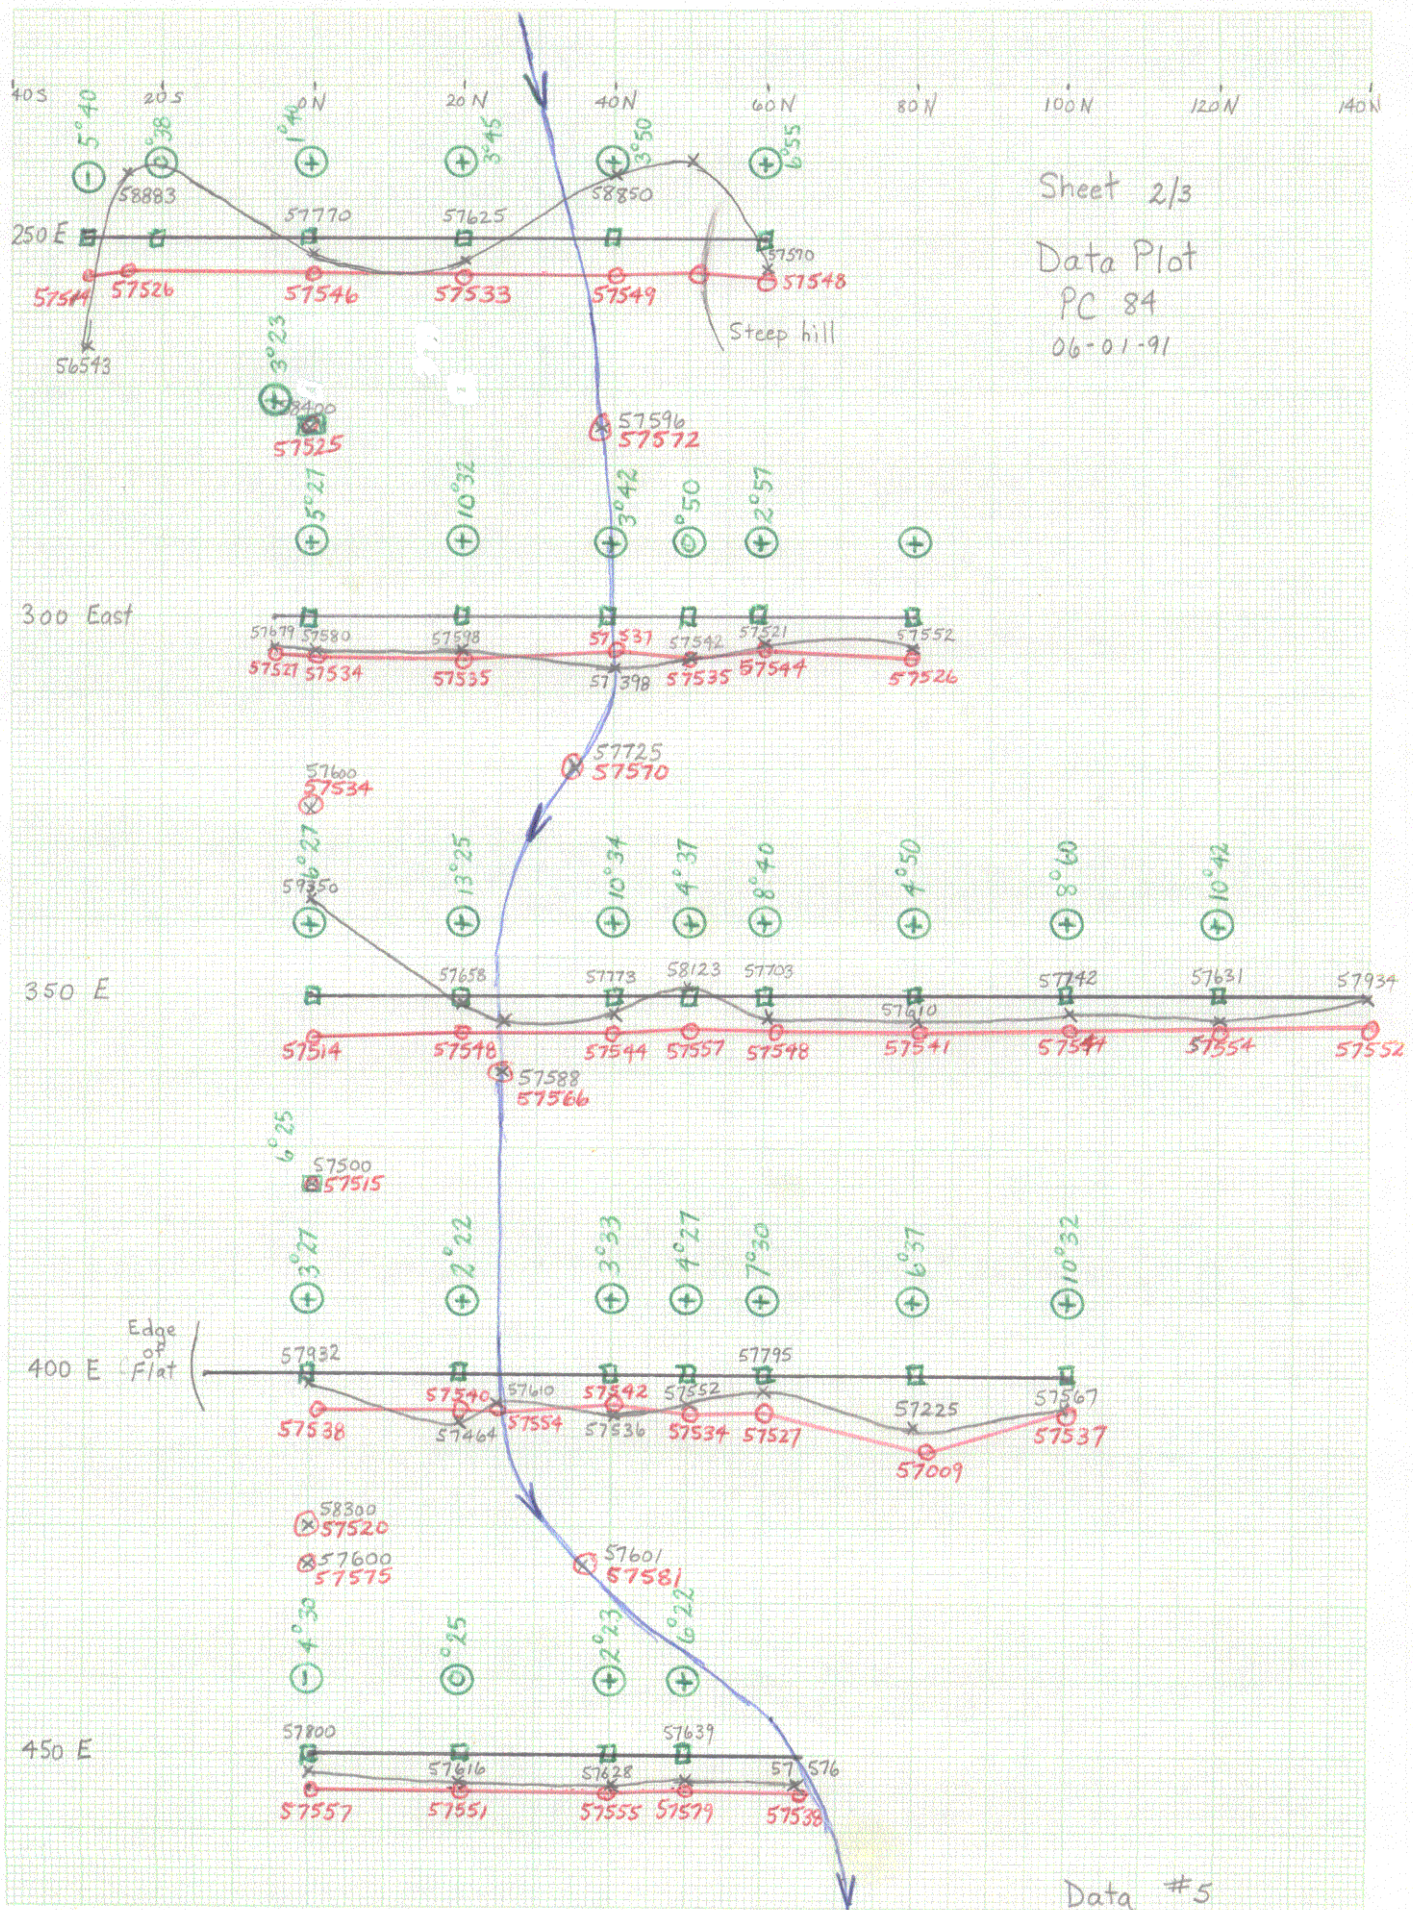 40S 20S 0N 20N 40N 60N 80N 100N 120N 140N
5°40 0°38 1°40 3°45 3°50 6°55
Sheet 2/3
58883 58850
57770 57625
250 E
57570
Data Plot
57526 57546 57533 57549 57548
PC 84
Steep hill
06-01-91
56543
3°23
58400
57525
57596
57572
5°27 10°32 3°42 0°50 2°57
300 East
57679 57580 57598 57537 57542 57521 57552
57527 57534 57535 57398 57535 57544 57526
57725
57570
57600
57534
6°27 13°25 10°34 4°37 8°40 4°50 8°60 10°42
59350
57658 57773 58123 57703 57742 57631 57934
350 E
57610
57514 57548 57544 57557 57548 57541 57544 57554 57552
57588
57566
6°25
57500
57515
3°27 2°22 3°33 4°27 7°30 6°37 10°32
Edge
of
Flat
400 E
57932 57795
57540 57610 57542 57552 57225 57567
57538 57464 57554 57536 57534 57527 57537
57009
58300
57520
57600
57575
57601
57581
4°30 0°25 2°23 6°22
57800 57639
450 E
57616 57628 57576
57557 57551 57555 57579 57538
Data #5